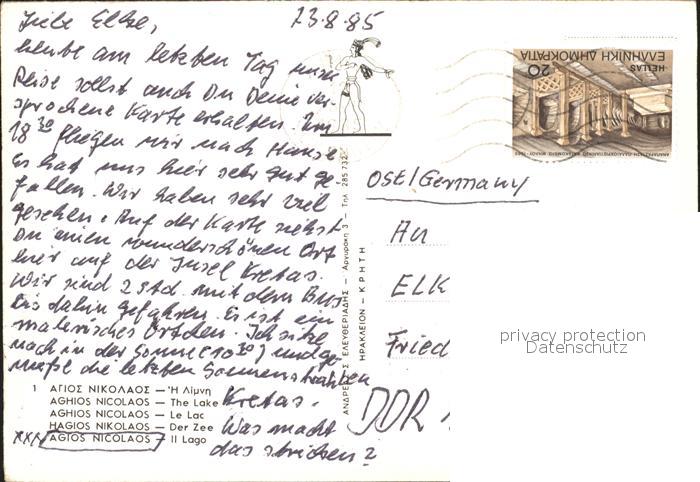 Liebe Elke,
13.8.85
heute am letzten Tag unserer
Reise sollst auch Du Deine ver-
sprochene Karte erhalten. Um
18³⁰ fliegen wir nach Hause
Es hat uns hier sehr gut ge-
fallen. Wir haben sehr viel
gesehen. Auf der Karte siehst
Du einen wunderschönen Ort
hier auf der Insel Kretas.
Wir sind 2 Std. mit dem Bus
bis dahin gefahren. Es ist ein
malerisches Örtchen. Ich sitze
noch in der Sonne (10³⁰) und ge-
nieße die letzten Sonnenstrahlen
Kretas.
Was macht
das stricken?
1 ΑΓΙΟΣ ΝΙΚΟΛΑΟΣ — Ἡ Λίμνη
AGHIOS NICOLAOS — The Lake
AGHIOS NICOLAOS — Le Lac
HAGIOS NIKOLAOS — Der Zee
xxx AGIOS NICOLAOS — Il Lago
ΑΝΔΡΕΑΣ ΕΛΕΥΘΕΡΙΑΔΗΣ — Αργυράκη 3 — Τηλ. 285.732
ΗΡΑΚΛΕΙΟΝ — ΚΡΗΤΗ
ΕΛΛΗΝΙΚΗ ΔΗΜΟΚΡΑΤΙΑ
HELLAS
20
Ost/Germany
An
ELK
Fried
DDR
privacy protection
Datenschutz